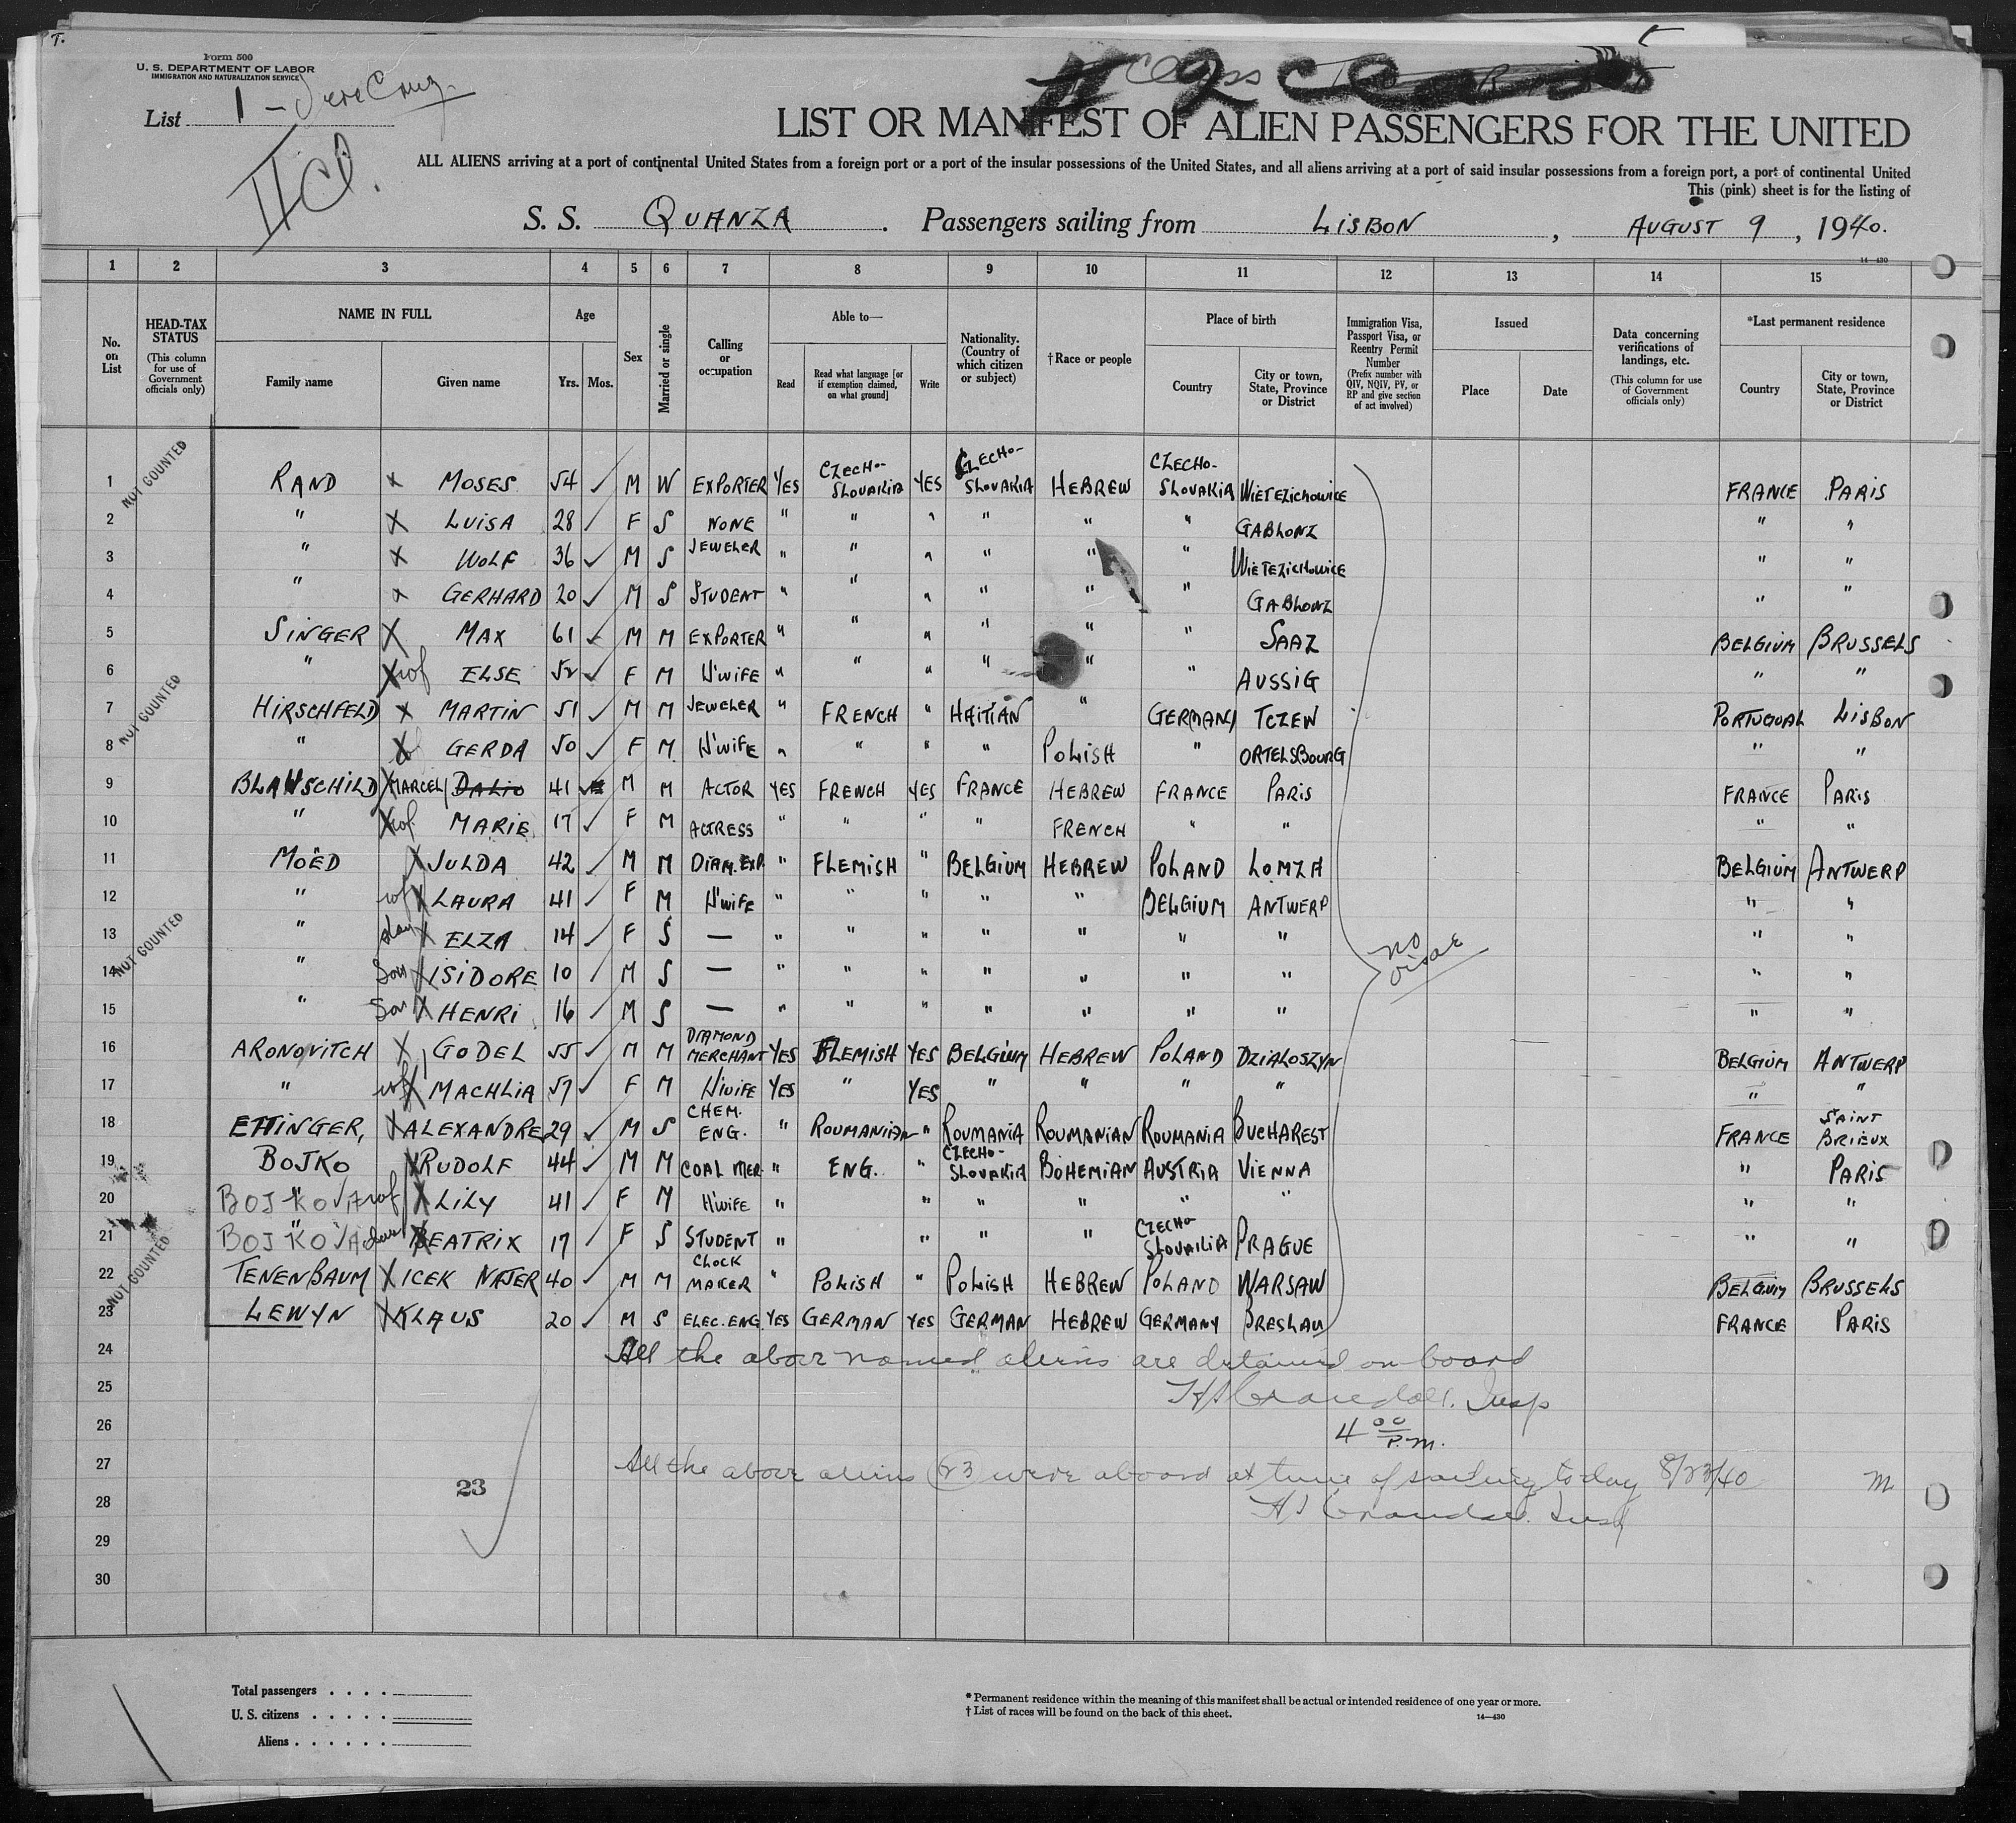 T.
Form 500
U. S. DEPARTMENT OF LABOR
IMMIGRATION AND NATURALIZATION SERVICE
List 1 - Vera Cruz.
II Cl.
2 Class
LIST OR MANIFEST OF ALIEN PASSENGERS FOR THE UNITED
ALL ALIENS arriving at a port of continental United States from a foreign port or a port of the insular possessions of the United States, and all aliens arriving at a port of said insular possessions from a foreign port, a port of continental United
This (pink) sheet is for the listing of
S. S. QUANZA. Passengers sailing from LISBON, AUGUST 9, 1940.
14—430
1 2 3 4 5 6 7 8 9 10 11 12 13 14 15
No. on List
HEAD-TAX STATUS (This column for use of Government officials only)
NAME IN FULL Family name Given name
Age Yrs. Mos.
Sex
Married or single
Calling or occupation
Able to— Read Read what language [or if exemption claimed, on what ground] Write
Nationality. (Country of which citizen or subject)
†Race or people
Place of birth Country City or town, State, Province or District
Immigration Visa, Passport Visa, or Reentry Permit Number (Prefix number with QIV, NQIV, PV, or RP and give section of act involved)
Issued Place Date
Data concerning verifications of landings, etc. (This column for use of Government officials only)
*Last permanent residence Country City or town, State, Province or District
NOT COUNTED
1 RAND X MOSES 54 ✓ M W EXPORTER YES CZECHO-SLOVAKIA YES CZECHO-SLOVAKIA HEBREW CZECHO-SLOVAKIA WIETEZICHOWICE FRANCE PARIS
2 " X LUISA 28 ✓ F S NONE " " " " " " GABLONZ " "
3 " X WOLF 36 ✓ M S JEWELER " " " " " " WIETEZICHOWICE " "
4 " X GERHARD 20 ✓ M S STUDENT " " " " " " GABLONZ " "
5 SINGER X MAX 61 ✓ M M EXPORTER " " " " " " SAAZ BELGIUM BRUSSELS
6 " X wf ELSE 52 ✓ F M H'WIFE " " " " " " AUSSIG " "
NOT COUNTED
7 HIRSCHFELD X MARTIN 51 ✓ M M JEWELER " FRENCH " HAITIAN " GERMANY TCZEW PORTUGUAL LISBON
8 " X GERDA 50 ✓ F M H'WIFE " " " " POLISH " ORTELSBOURG " "
9 BLAUSCHILD X MARCEL/ DALIO 41 ✓ M M ACTOR YES FRENCH YES FRANCE HEBREW FRANCE PARIS FRANCE PARIS
10 " X wf. MARIE 17 ✓ F M ACTRESS " " " " FRENCH " " " "
11 MOËD X JULDA 42 ✓ M M DIAM. EXP. " FLEMISH " BELGIUM HEBREW POLAND LOMZA BELGIUM ANTWERP
12 " wf X LAURA 41 ✓ F M H'WIFE " " " " " BELGIUM ANTWERP " "
13 " dau X ELZA 14 ✓ F S — " " " " " " " " "
NOT COUNTED
14 " Son X ISIDORE 10 ✓ M S — " " " " " " " " "
15 " Son X HENRI 16 ✓ M S — " " " " " " " " "
16 ARONOVITCH X GODEL 55 ✓ M M DIAMOND MERCHANT YES FLEMISH YES BELGIUM HEBREW POLAND DZIALOSZYN BELGIUM ANTWERP
17 " wf X MACHLIA 57 ✓ F M H'WIFE YES " YES " " " " " "
18 ETTINGER, X ALEXANDRE 29 ✓ M S CHEM. ENG. " ROUMANIAN " ROUMANIA ROUMANIAN ROUMANIA BUCHAREST FRANCE SAINT BRIEUX
19 BOJKO X RUDOLF 44 ✓ M M COAL MER. " ENG. " CZECHO-SLOVAKIA BOHEMIAN AUSTRIA VIENNA " PARIS
20 BOJKOVA wf X LILY 41 ✓ F M H'WIFE " " " " " " " "
21 BOJKOVA dau X BEATRIX 17 ✓ F S STUDENT " " " " CZECHO-SLOVAKIA PRAGUE " "
NOT COUNTED
22 TENENBAUM X ICEK NAJER 40 ✓ M M CLOCK MAKER " POLISH " POLISH HEBREW POLAND WARSAW BELGIUM BRUSSELS
23 LEWYN X KLAUS 20 ✓ M S ELEC. ENG. YES GERMAN YES GERMAN HEBREW GERMANY BRESLAU FRANCE PARIS
no visae
24 All the above named aliens are detained on board
25 H S Crandall. Insp
26 4 00 P.M.
27 All the above aliens (23) were aboard at time of sailing today 8/23/40 m
28 23 H S Crandall. Insp
29
30
Total passengers . . . .
U. S. citizens . . . . .
Aliens . . . . . .
* Permanent residence within the meaning of this manifest shall be actual or intended residence of one year or more.
† List of races will be found on the back of this sheet.
14—430